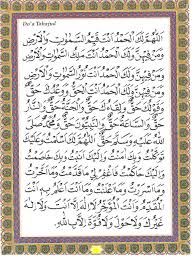 Do'a Tahajjud
اَللّٰهُمَّ لَكَ الْحَمْدُ اَنْتَ قَيِّمُ السَّمٰوَاتِ وَالْاَرْضِ
وَمَنْ فِيْهِنَّ وَلَكَ الْحَمْدُ اَنْتَ مَلِكُ السَّمٰوَاتِ وَالْاَرْضِ
وَمَنْ فِيْهِنَّ وَلَكَ الْحَمْدُ اَنْتَ نُوْرُ السَّمٰوَاتِ وَالْاَرْضِ
وَمَنْ فِيْهِنَّ وَلَكَ الْحَمْدُ اَنْتَ الْحَقُّ وَوَعْدُكَ الْحَقُّ وَلِقَاؤُكَ حَقٌّ
وَقَوْلُكَ حَقٌّ وَالْجَنَّةُ حَقٌّ وَالنَّارُ
حَقٌّ وَالنَّبِيُّوْنَ حَقٌّ وَمُحَمَّدٌ صَلَّى
اللهُ عَلَيْهِ وَسَلَّمَ حَقٌّ وَالسَّاعَةُ حَقٌّ اَللّٰهُمَّ لَكَ اَسْلَمْتُ وَبِكَ اٰمَنْتُ وَعَلَيْكَ
تَوَكَّلْتُ وَاِلَيْكَ اَنَبْتُ وَبِكَ خَاصَمْتُ
وَاِلَيْكَ حَاكَمْتُ فَاغْفِرْلِيْ مَا قَدَّمْتُ وَمَا اَخَّرْتُ
وَمَا اَسْرَرْتُ وَمَا اَعْلَنْتُ وَمَا اَنْتَ اَعْلَمُ بِهِ مِنِّيْ اَنْتَ
الْمُقَدِّمُ وَاَنْتَ الْمُؤَخِّرُ لَا اِلٰهَ اِلَّا اَنْتَ وَلَا اِلٰهَ
غَيْرُكَ وَلَا حَوْلَ وَلَا قُوَّةَ اِلَّا بِاللهِ